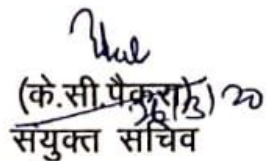 (के.सी.पैकरा)
संयुक्त सचिव